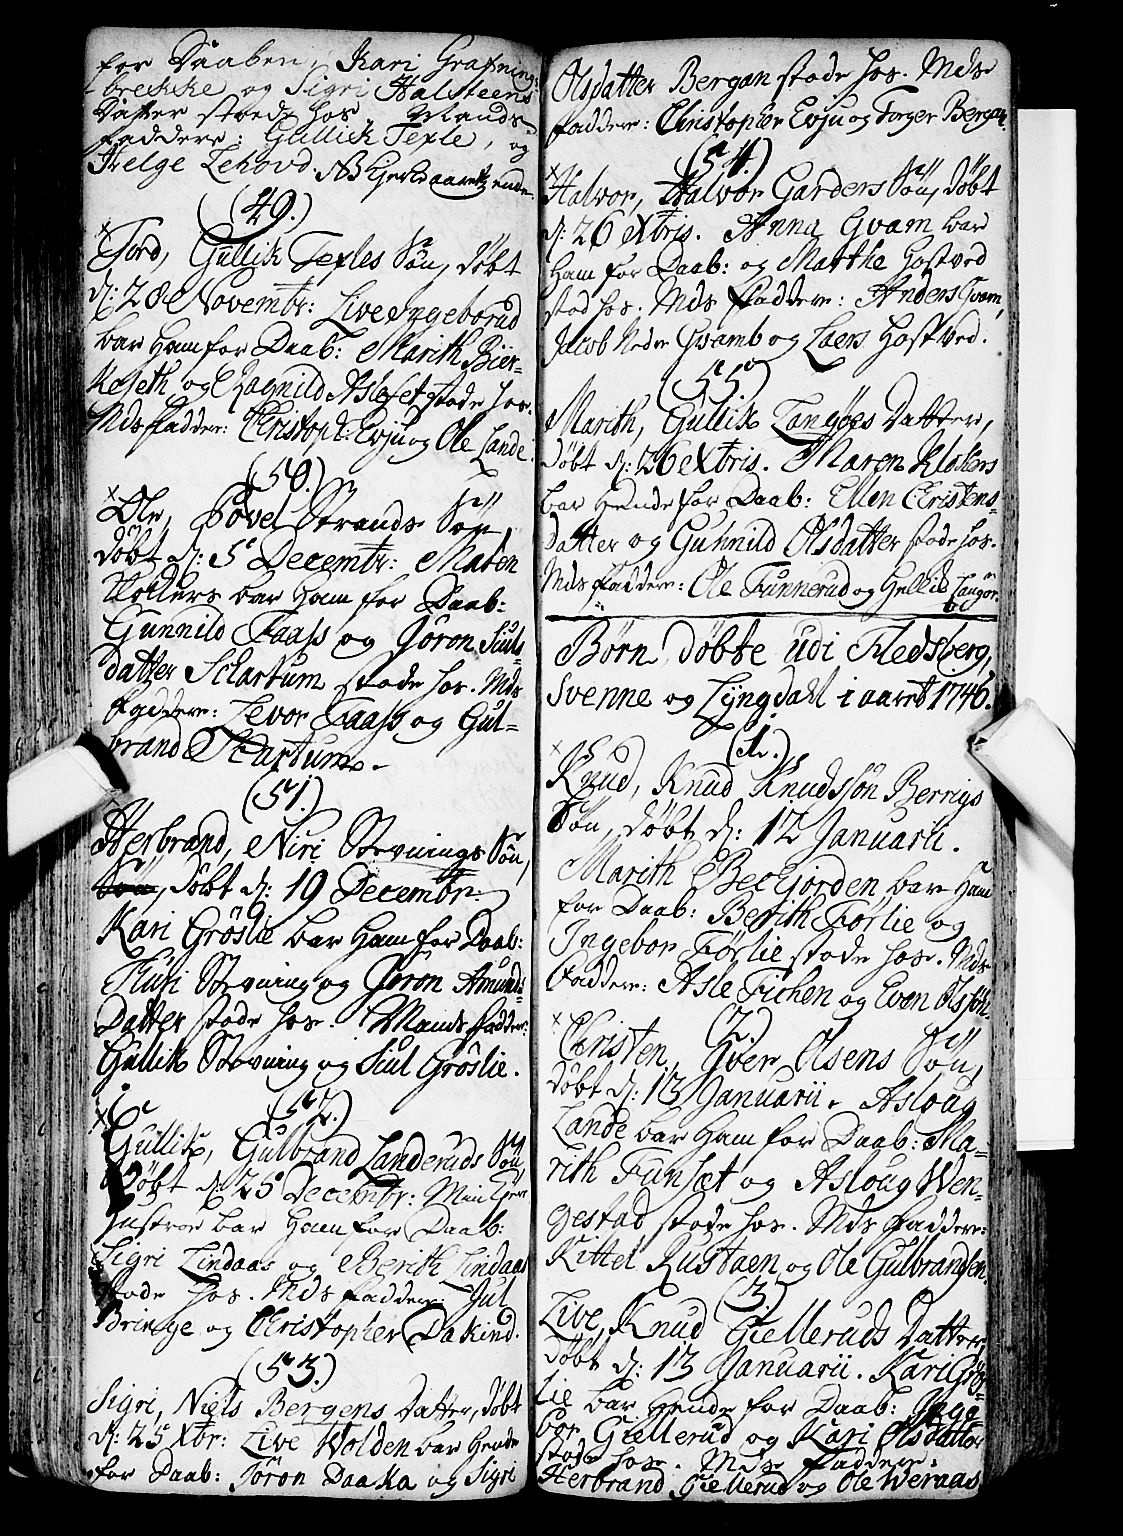 for Daaben, Kari Grafning-
brekke og Sigri Halsteens-
Datter stode hos. Mands-
faddere: Gullich Texle, og
Helge Lehovd.
(49.)
Tord, Gullik Texles Søn, døbt
d: 28e Novembr: Live Ingeborud
bar Ham for Daab: Marith Biër-
keseth og Ragnild Asleset stode hos.
Mds faddere: Christoph: Evju og Ole Lande.
(50.)
Ole, Povel Strands Søn,
døbt d: 5te Decembr: Maren
Kloklers bar Ham for Daab:
Gunnild Faass og Jöron Siuls-
datter Schartum stode hos. Mds
faddere: Levor Faass og Gul-
brand Scartum.
(51.)
Herbrand, Niri Stevnings Søn,
døbt d: 19 Decembr:
Kari Gröslie bar Ham for Daab:
Thuri Stevning og Jöron Amunds-
Datter stode hos. Mands faddere:
Gullik Stevning og Siul Gröslie.
(52.)
Gullik, Gulbrand Landeruds Søn,
Døbt d: 25 Decembr: Min
Hustroe bar Ham for Daab:
Sigri Lindaas og Berith Lindaas
stode hos. Mds faddere: Jul
Bringe og Christopher Dakind.
(53.)
Sigri, Niels Bergens Datter, døbt
d: 25 Xbr: Live Wolden bar Hende
for Daab: Jöron Daaka og Sigri
Olsdatter Bergan stode hos. Mds
faddere: Christopher Evju og Torger Bergan.
(54.)
Halvor, Halvor Garders Søn, døbt
d: 26 Xbris. Anna Gvam bar
Ham for Daab: og Marthe Hostved
stod hos. Mds faddere: Anders Gvam,
Jacob Nedre Gvamb og Laers Hostved.
(55)
Marith, Gullik Langöes Datter,
Døbt d: 26 Xbris. Maren Klokers
bar Hende for Daab: Ellen Christens-
datter og Guhnild Olsdatter stode hos.
Mds faddere: Ole Funnerud og Hellik Langöe.
Børn døbte udi Fledsberg,
Svenne og Lyngdahl i aaret 1746.
(1.)
Knud, Knud Knudssøn Berrigs
Søn, døbt d: 12 Januarii.
Marith Becgjorden bar Ham
for Daab: Berith Førlie og
Ingebor Førlie stode hos. Mds
faddere: Asle Fichen og Even Olssøn.
(2)
Christen, Iver Olsens Søn,
døbt d: 13 Januarii. Asloug
Lande bar Ham for Daab: Ma-
rith Funset og Asloug Wen-
gestad stode hos. Mds faddere:
Kittel Rustaen og Ole Gulbrandsen
(3)
Live, Knud Gielleruds Datter,
døbt d: 13 Januarii. Kari Grøs-
lie bar Hende for Daab: Inge-
bor Giellerud og Kari Olsdatter
stode hos. Mds faddere:
Herbrand Giellerud og Ole Weraas